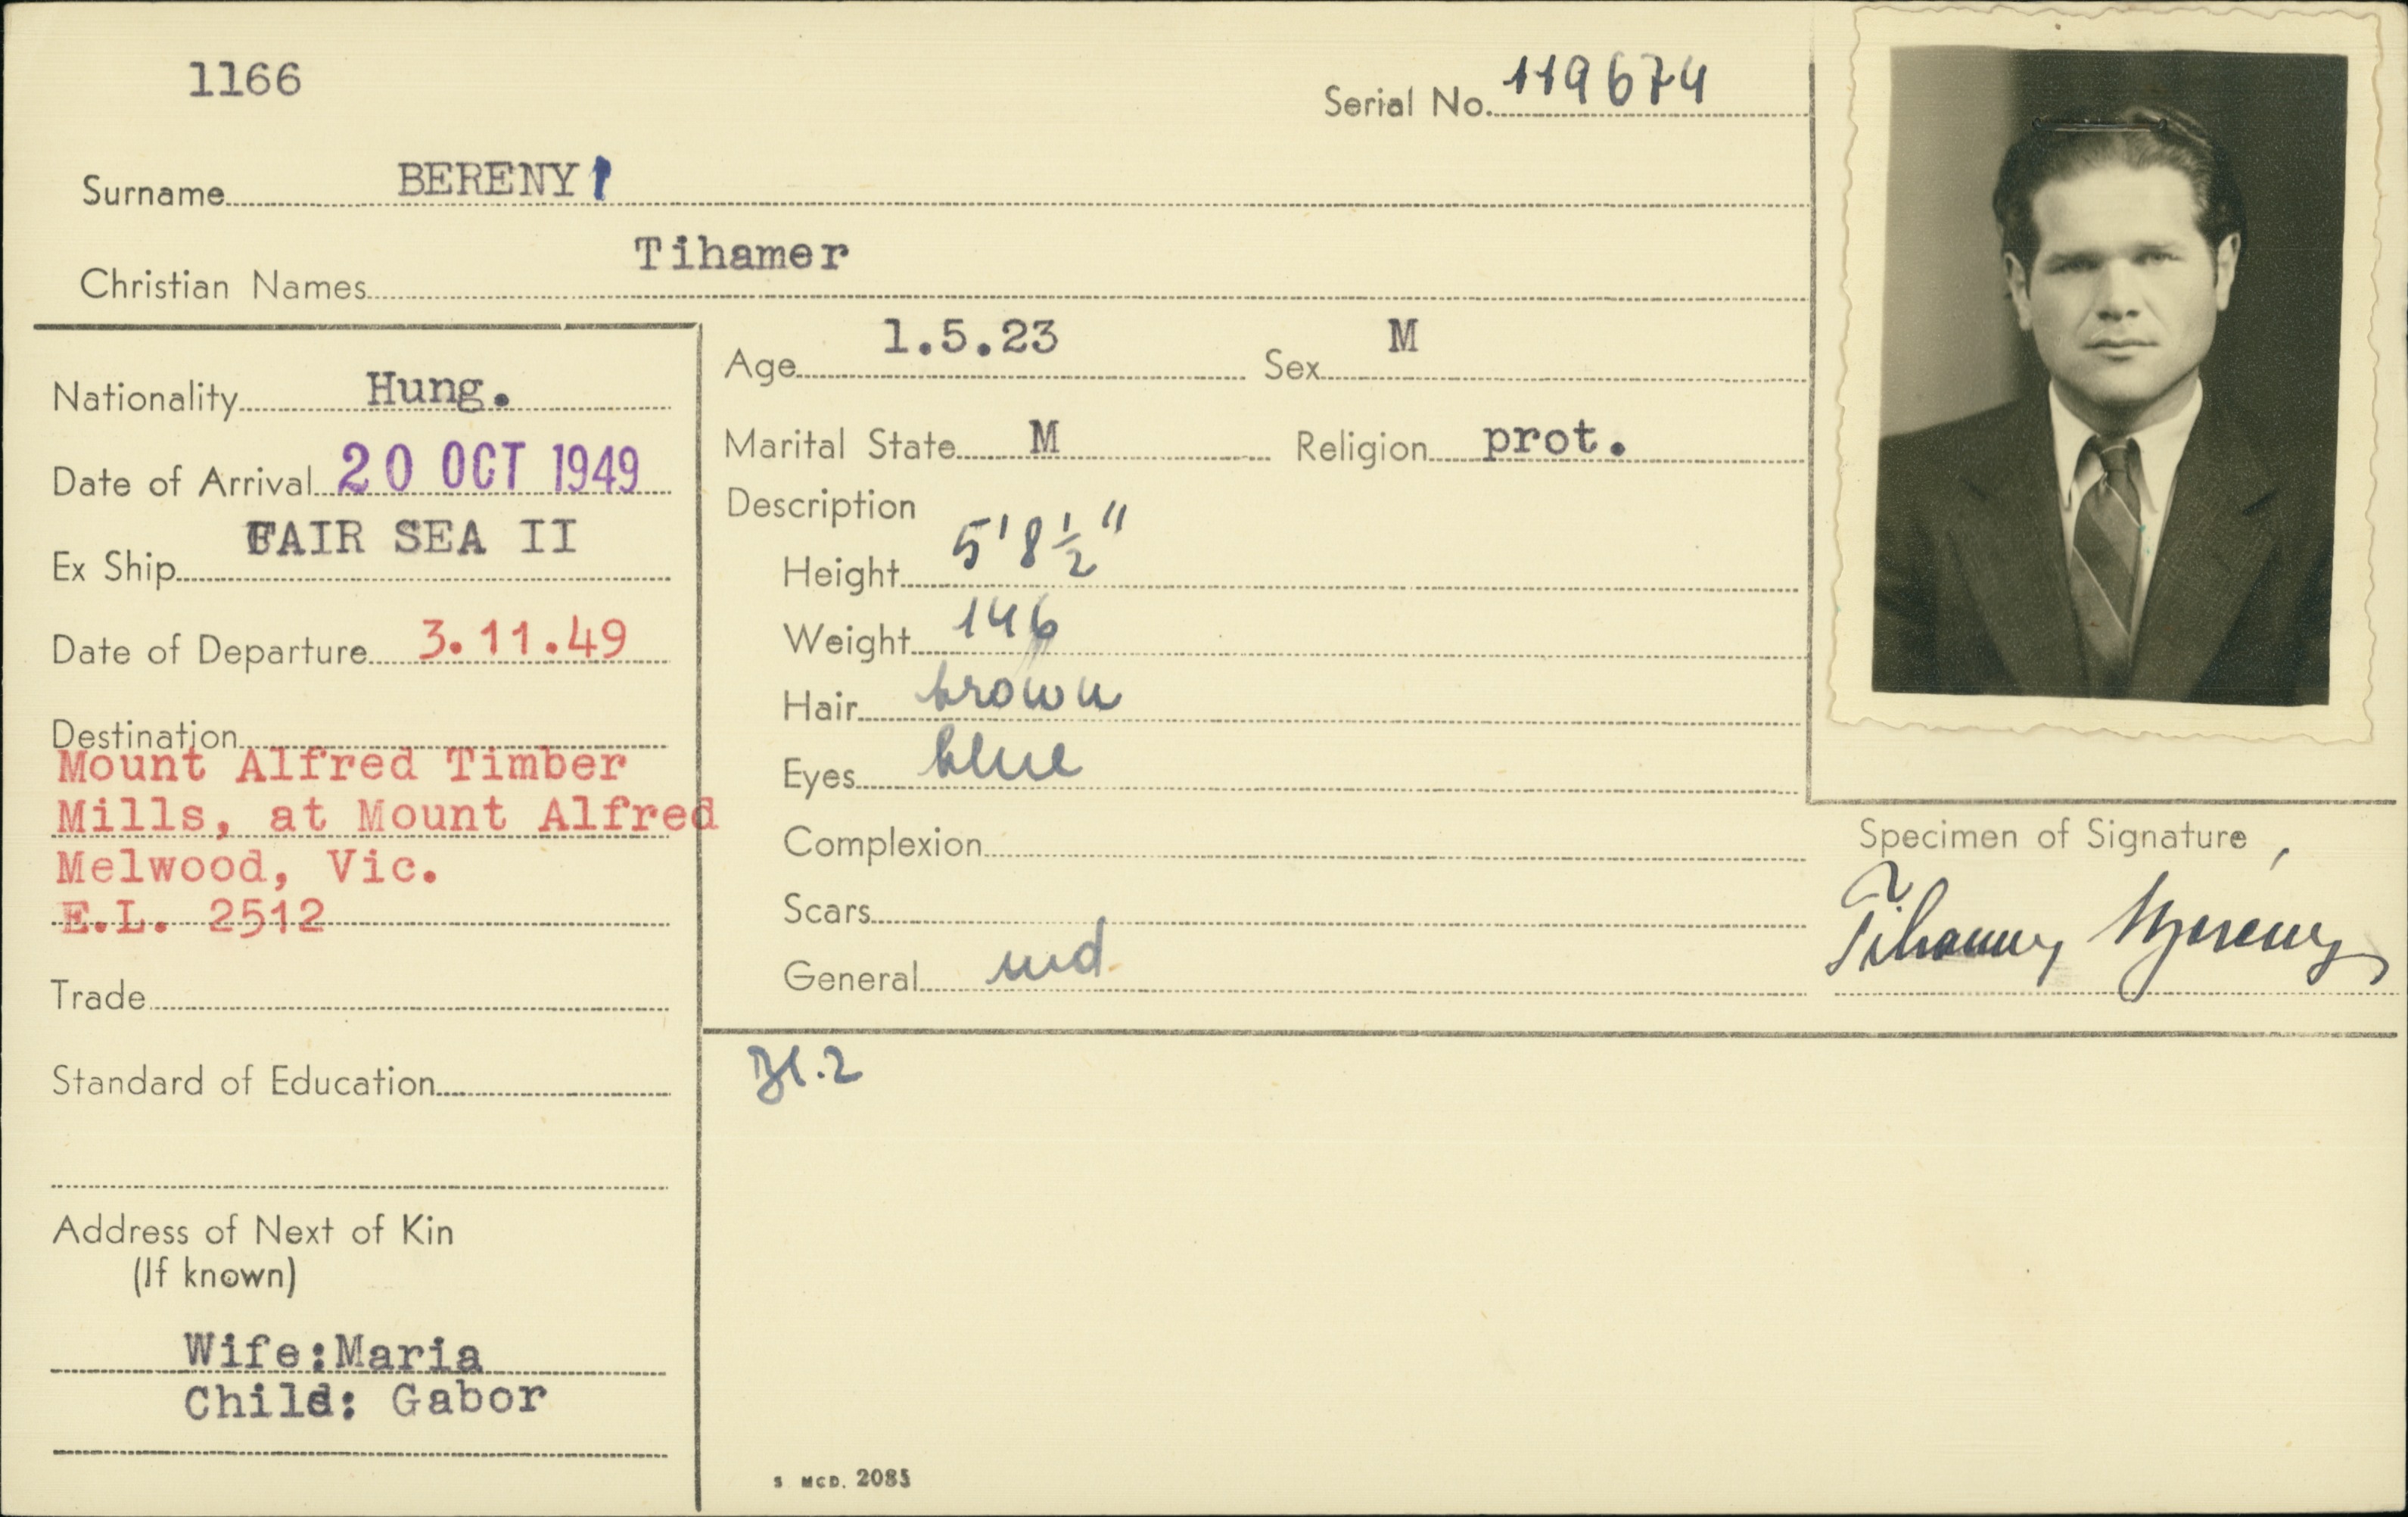 1166
Serial No. 119674
Surname BERENYI
Christian Names Tihamer
Nationality Hung.
Date of Arrival 20 OCT 1949
Ex Ship FAIR SEA II
Date of Departure 3.11.49
Destination
Mount Alfred Timber
Mills, at Mount Alfred
Melwood, Vic.
E.L. 2512
Trade
Standard of Education
Address of Next of Kin
(If known)
Wife:Maria
Child: Gabor
Age 1.5.23 Sex M
Marital State M Religion prot.
Description
Height 5'8½"
Weight 146
Hair brown
Eyes blue
Complexion
Scars
General
Specimen of Signature
S MCD. 2085